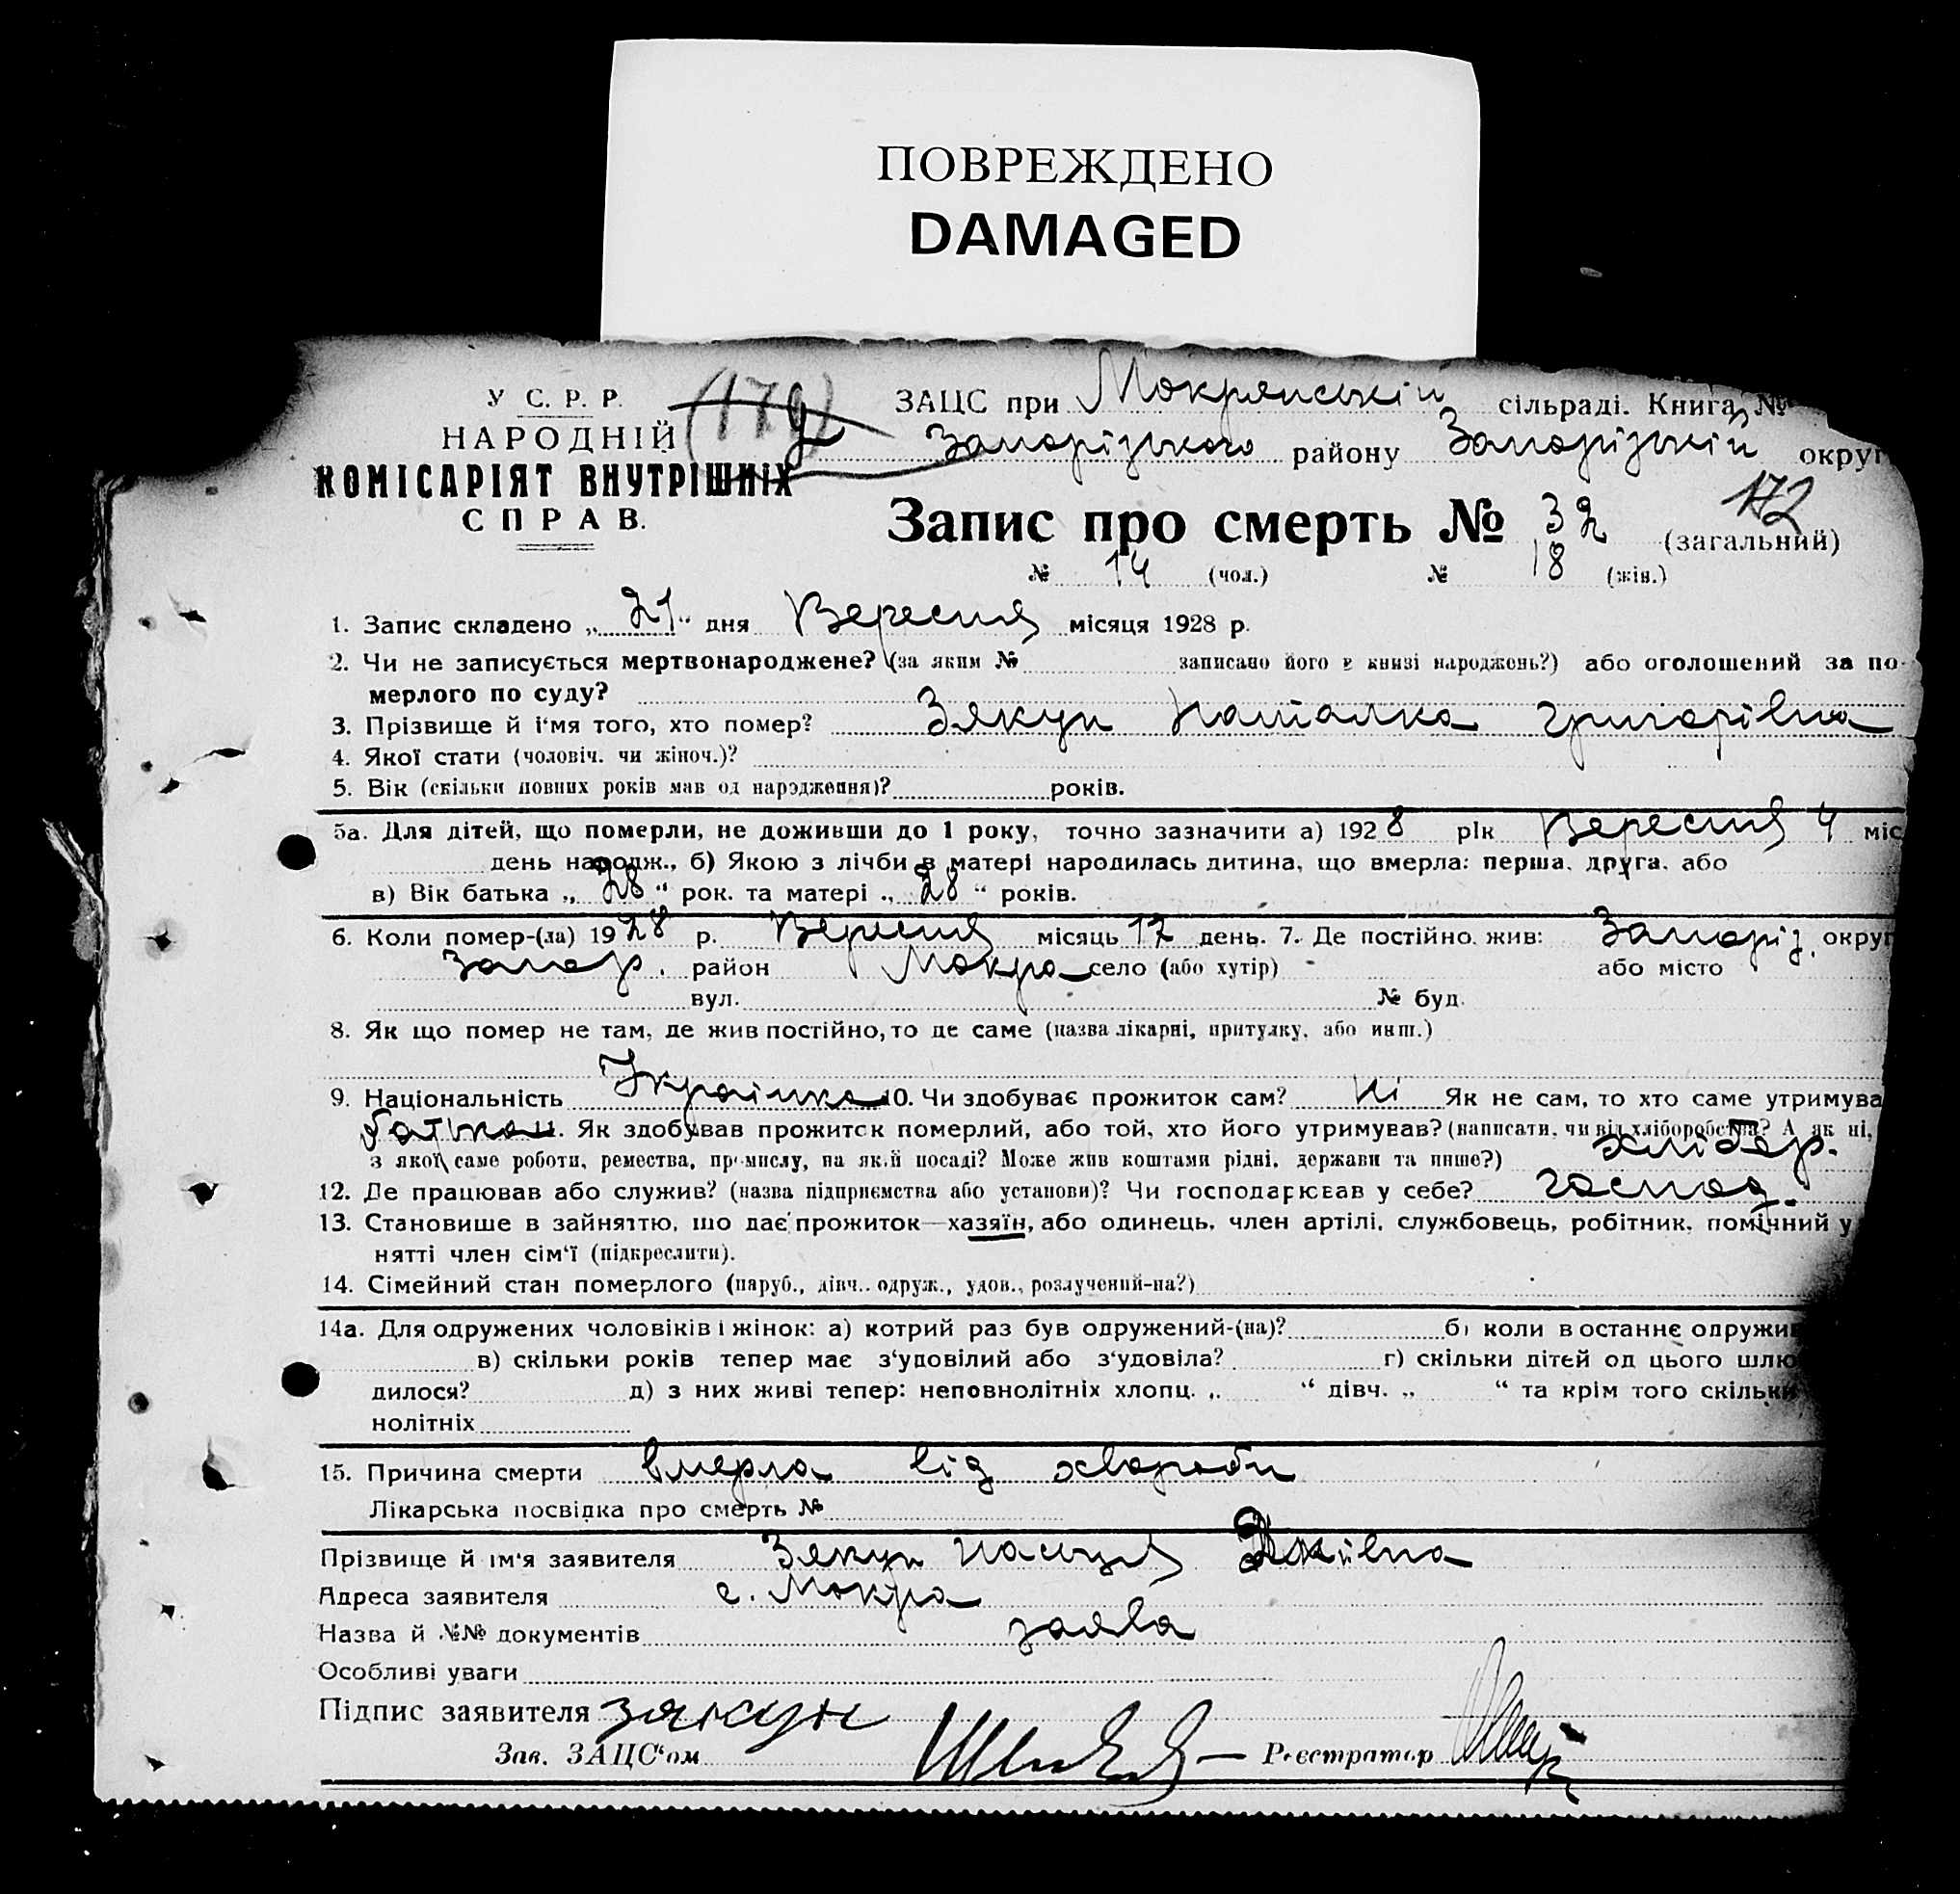 ПОВРЕЖДЕНО
DAMAGED
У С. Р. Р.
НАРОДНІЙ
КОМІСАРІЯТ ВНУТРІШНІХ
СПРАВ.
ЗАЦС при Мокрянській сільраді. Книга №
Запорізького району Запорізькій округ
Запис про смерть № 32 (загальний)
172
№ 14 (чол.) № 18 (жін.)
1. Запис складено „21“ дня Вересня місяця 1928 р.
2. Чи не записується мертвонароджене? (за яким № записано його в книзі народжень?) або оголошений за по-
мерлого по суду?
3. Прізвище й і'мя того, хто помер? Зякун Наталка Григорівна
4. Якої стати (чоловіч. чи жіноч.)?
5. Вік (скільки повних років мав од народження)? років.
5а. Для дітей, що померли, не доживши до 1 року, точно зазначити а) 1928 рік Вересня 4 міс
день народж., б) Якою з лічби в матері народилась дитина, що вмерла: перша, друга, або
в) Вік батька „28“ рок. та матері „28“ років.
6. Коли помер-(ла) 1928 р. Вересня місяць 17 день. 7. Де постійно жив: Запоріз. округ
Запор. район Мокра село (або хутір) або місто
вул. № буд.
8. Як що помер не там, де жив постійно, то де саме (назва лікарні, притулку, або инш.)
9. Національність Українка 10. Чи здобуває прожиток сам? Ні Як не сам, то хто саме утримува
батько. Як здобував прожиток померлий, або той, хто його утримував? (написати, чи від хліборобства? А як ні,
з якої саме роботи, ремества, промислу, на якій посаді? Може жив коштами рідні, держави та инше?) хлібор.
12. Де працював або служив? (назва підприємства або установи)? Чи господарював у себе? господ.
13. Становище в зайняттю, що дає прожиток—хазяїн, або одинець, член артілі, службовець, робітник, помічний у
нятті член сім'ї (підкреслити).
14. Сімейний стан померлого (паруб., дівч., одруж., удов., розлучений-на?)
14а. Для одружених чоловіків і жінок: а) котрий раз був одружений-(на)? б) коли востаннє одружи
в) скільки років тепер має з'удовілий або з'удовіла? г) скільки дітей од цього шлю
дилося? д) з них живі тепер: неповнолітніх хлопц. „ “ дівч. „ “ та крім того скільки
нолітніх
15. Причина смерти вмерла від хвороби
Лікарська посвідка про смерть №
Прізвище й ім'я заявителя Зякун
Адреса заявителя с. Мокра
Назва й №№ документів заява
Особливі уваги
Підпис заявителя зякун
Зав. ЗАЦС'ом Реєстратор